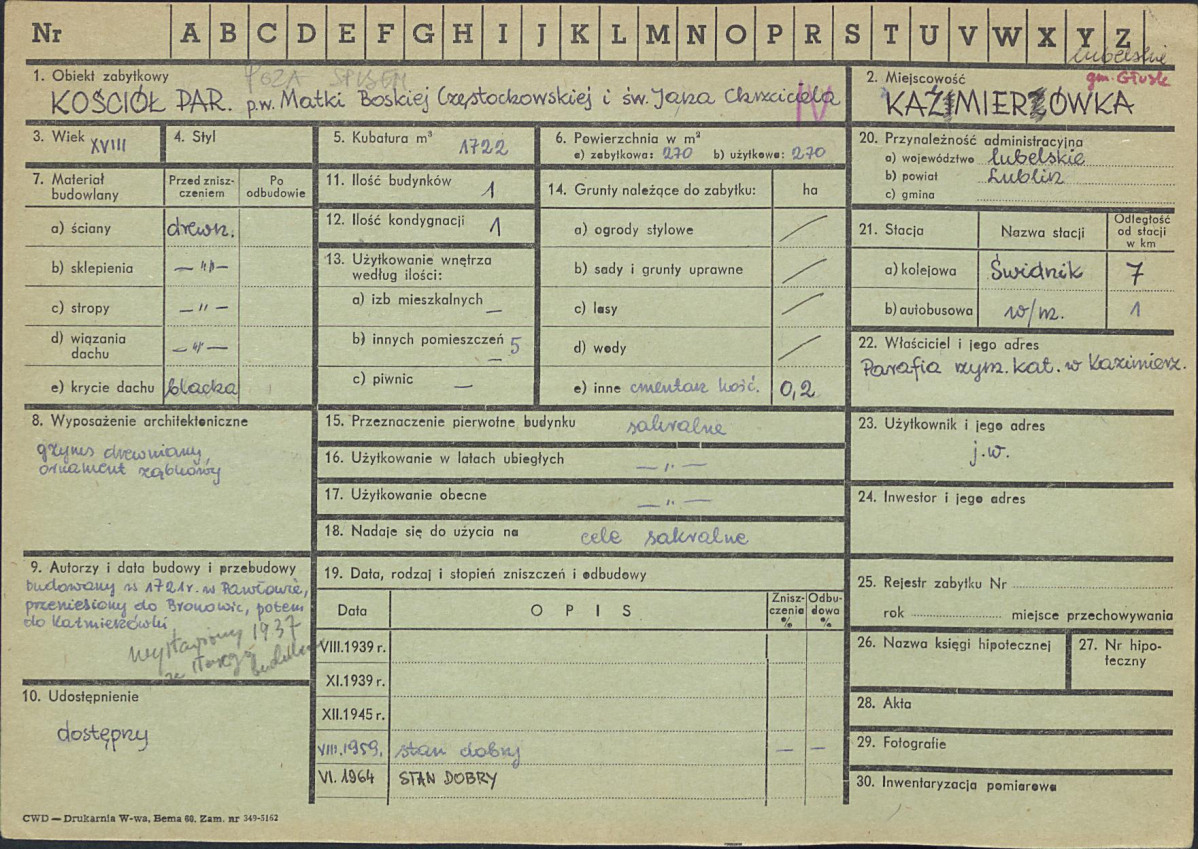 Nr A B C D E F G H I J K L M N O P R S T U V W X Y Z
lubelskie
1. Obiekt zabytkowy
POZA SPISEM
KOŚCIÓŁ PAR. p.w. Matki Boskiej Częstochowskiej i św. Jana Chrzciciela
IV
2. Miejscowość
gm. Głusk
KAZIMIERZÓWKA
3. Wiek XVIII
4. Styl
5. Kubatura m³ 1722
6. Powierzchnia w m²
a) zabytkowa: 270 b) użytkowa: 270
7. Materiał budowlany
Przed znisz-
czeniem
Po
odbudowie
a) ściany drewn.
b) sklepienia — „ —
c) stropy — „ —
d) wiązania
dachu — „ —
e) krycie dachu blacha
8. Wyposażenie architektoniczne
gzyms drewniany,
ornament ząbkowy
9. Autorzy i data budowy i przebudowy
budowany w 1721r. w Pawłowie,
przeniesiony do Bronowic, potem
do Kaźmieszówki
wystawiony 1937
ze starego budulcu
10. Udostępnienie
dostępny
11. Ilość budynków 1
12. Ilość kondygnacji 1
13. Użytkowanie wnętrza
według ilości:
a) izb mieszkalnych —
b) innych pomieszczeń 5
c) piwnic —
14. Grunty należące do zabytku: ha
a) ogrody stylowe
b) sady i grunty uprawne
c) lasy
d) wody
e) inne cmentarz kość. 0,2
15. Przeznaczenie pierwotne budynku sakralne
16. Użytkowanie w latach ubiegłych — „ —
17. Użytkowanie obecne — „ —
18. Nadaje się do użycia na cele sakralne
19. Data, rodzaj i stopień zniszczeń i odbudowy
Data OPIS
Znisz-
czenia
%
Odbu-
dowa
%
VIII.1939 r.
XI.1939 r.
XII.1945 r.
VIII.1959. stan dobry — —
VI. 1964 STAN DOBRY
20. Przynależność administracyjna
a) województwo lubelskie
b) powiat Lublin
c) gmina
21. Stacja Nazwa stacji
Odległość
od stacji
w km
a) kolejowa Świdnik 7
b) autobusowa w/m. 1
22. Właściciel i jego adres
Parafia rzym. kat. w Kazimierz.
23. Użytkownik i jego adres
j.w.
24. Inwestor i jego adres
25. Rejestr zabytku Nr
rok miejsce przechowywania
26. Nazwa księgi hipotecznej
27. Nr hipo-
teczny
28. Akta
29. Fotografie
30. Inwentaryzacja pomiarowa
CWD — Drukarnia W-wa, Bema 60. Zam. nr 349-5162